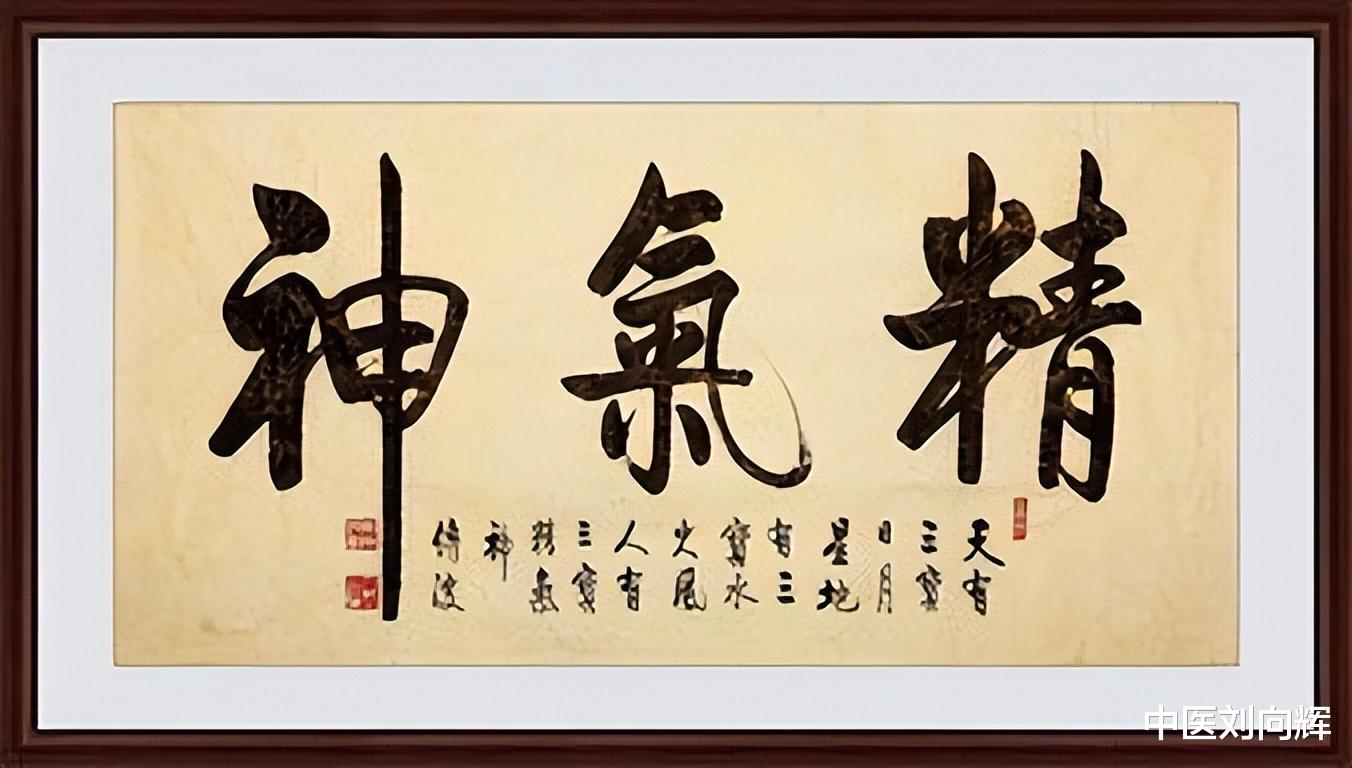 精氣神
天有
三寶
日月
星地
有三
寶水
火風
人有
三寶
精氣
神
中医刘向辉